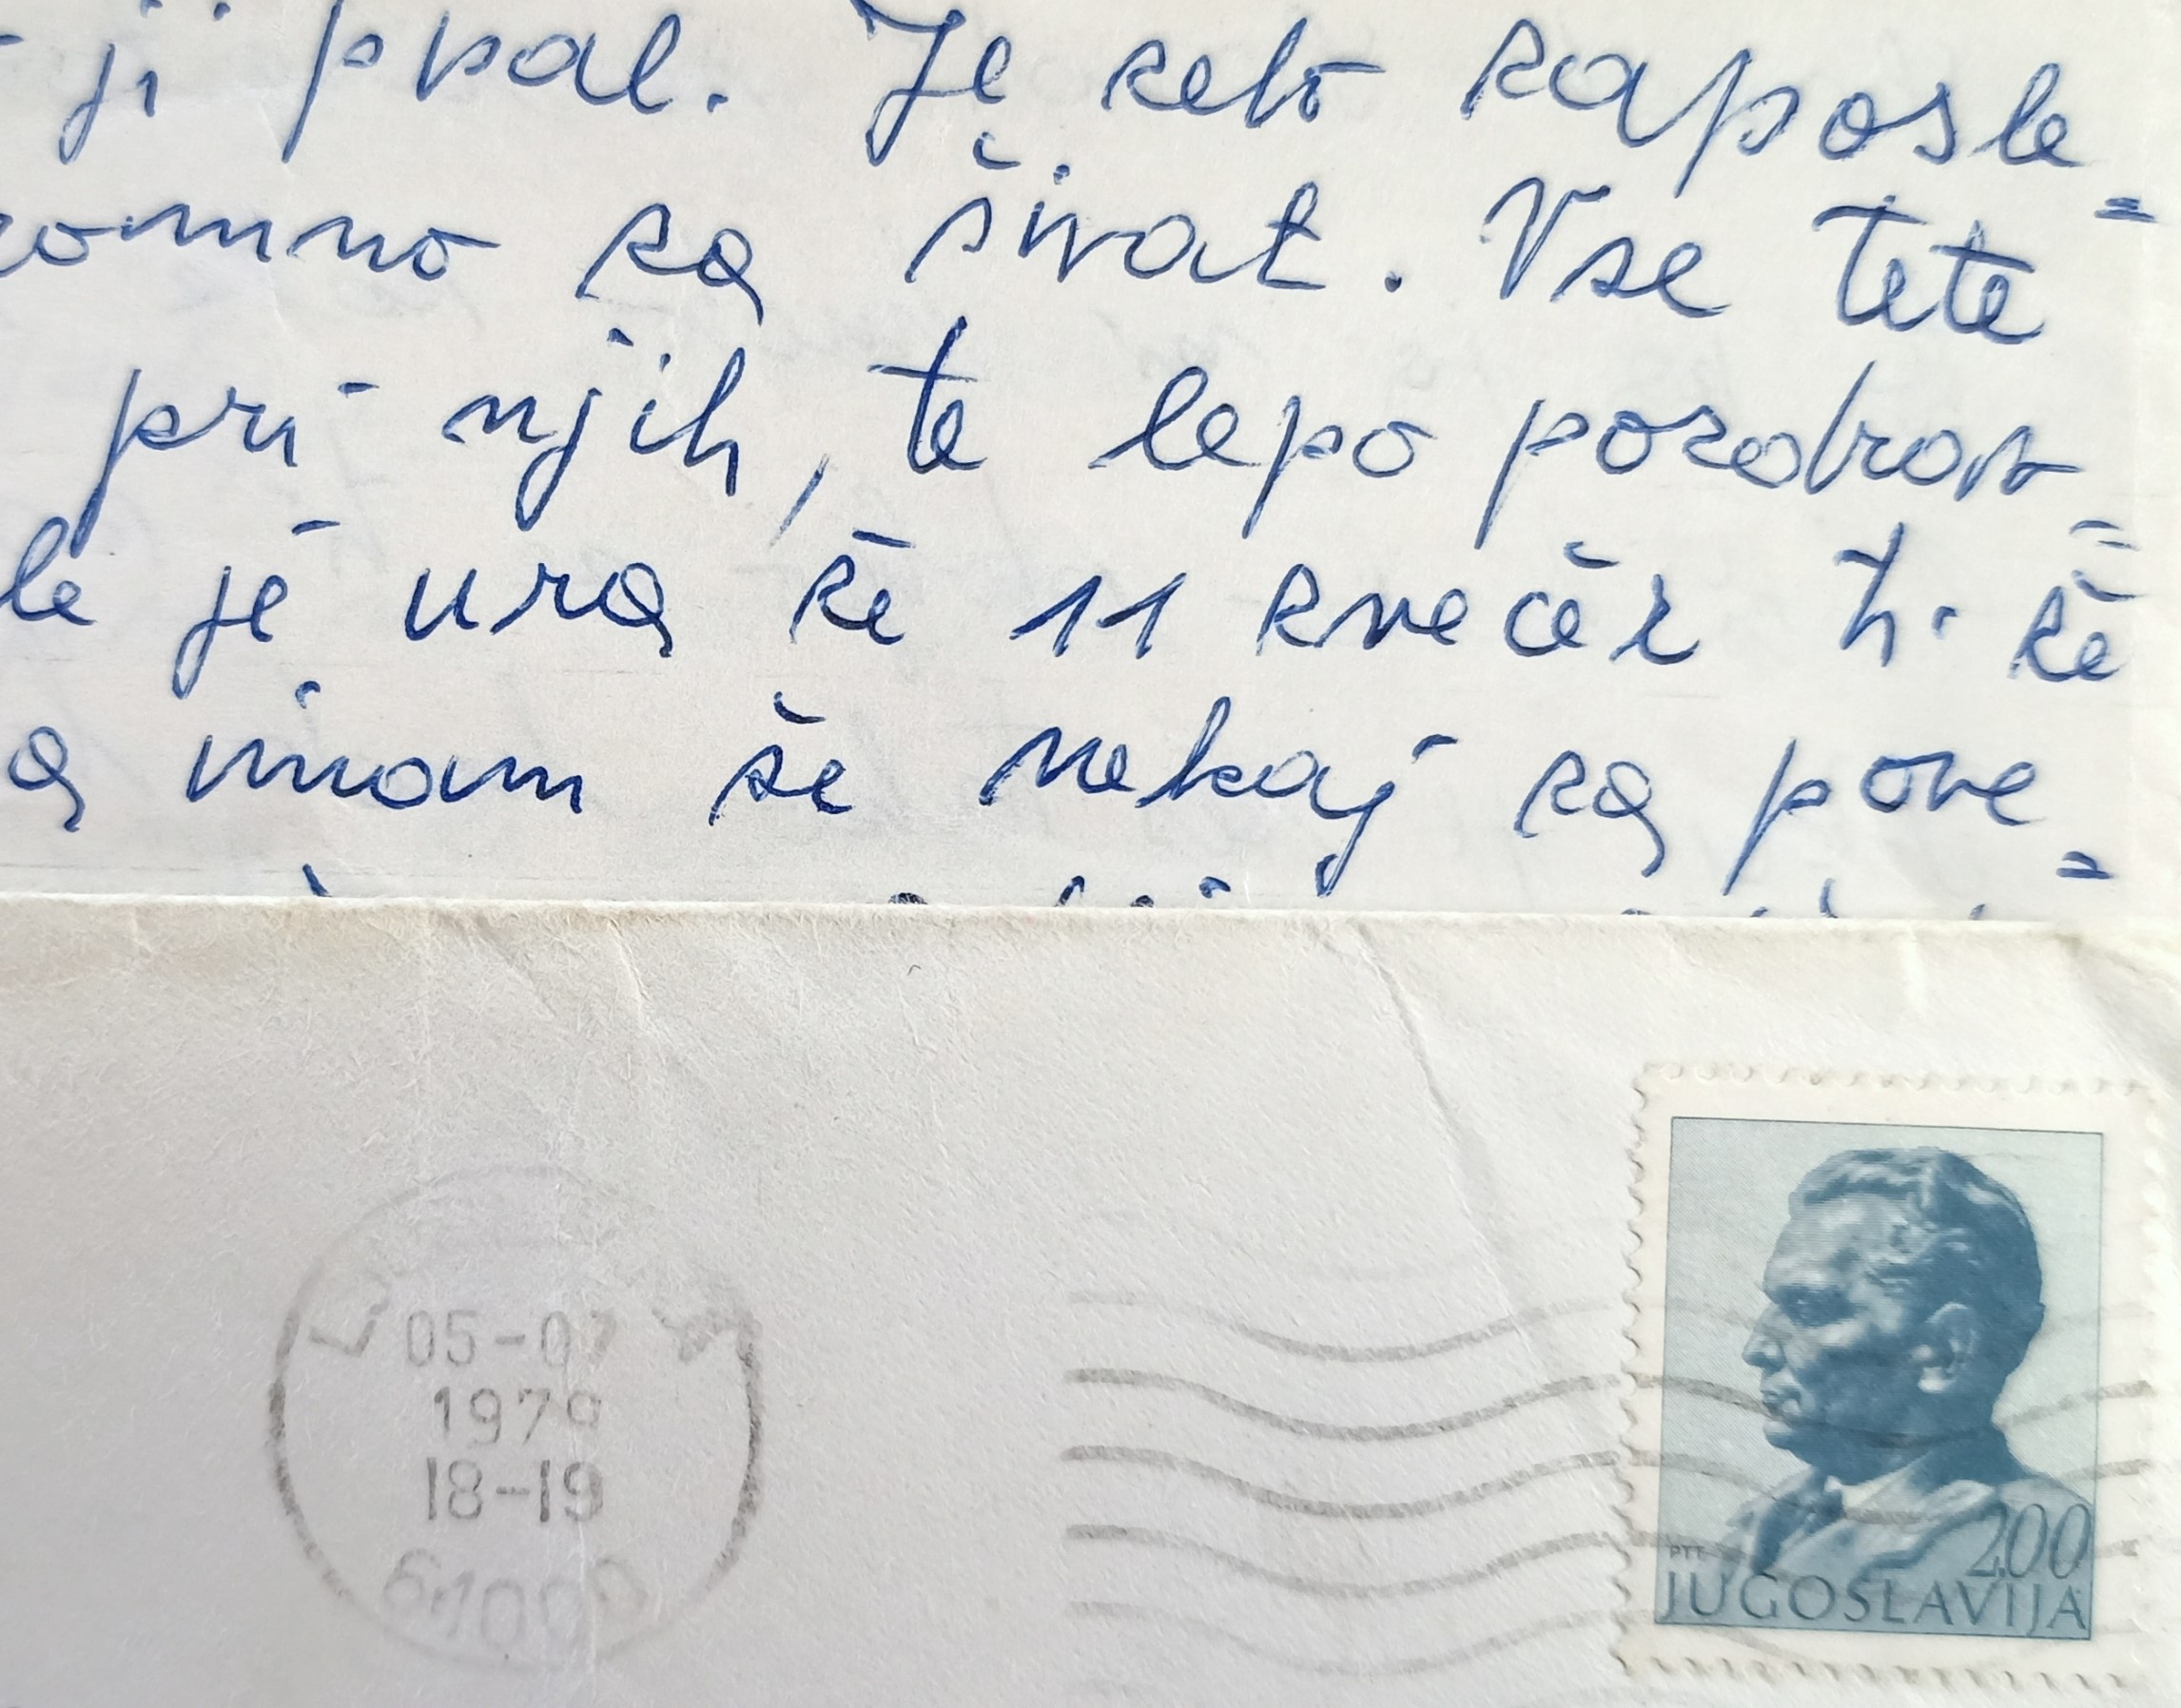 ji pval. Je zelo zaposle=
romno za šivat. Vse tete
pri njih, te lepo pozdrav=
le je ura že 11 zvečer ž. že
a imam še nekaj za pove=
05-07
1979
18-19
61000
200
PTT
JUGOSLAVIJA